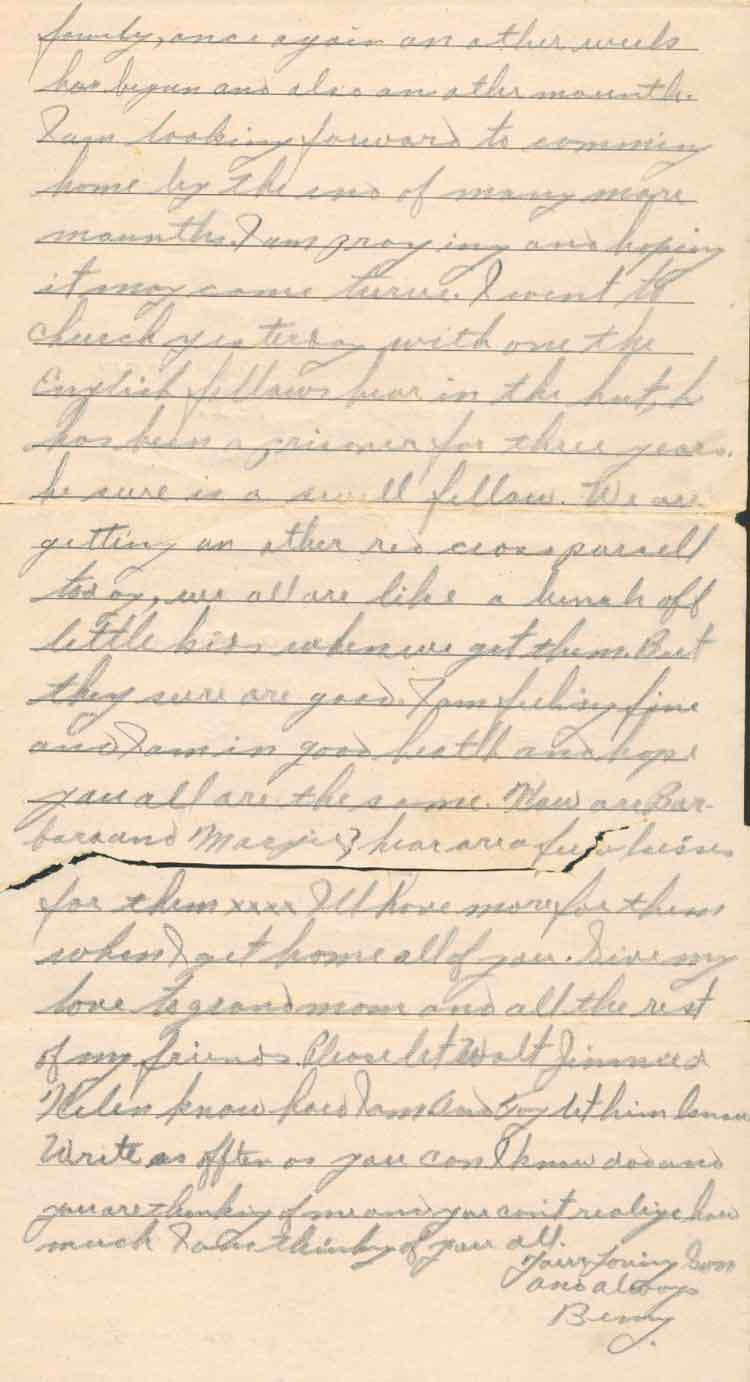 family, once again an other week
has begun and also an other mounth.
I am looking forward to comming
home by the end of many more
mounths. I am praying and hoping
it may come true. I went to
church yesterday with one the
English fellows hear in the hut, h
has been a prisoner for three years.
he sure is a swell fellow. We are
getting an other red cross parsell
today, we all are like a bunch off
little kids when we get them. But
they sure are good. I am feeling fine
and I am in good heath and hope
you all are the same. How are Bar-
bara and Margie? hear are a few kisses
for them xxxx I'll have more for them
when I get home all of you. Give my
love to grandmom and all the rest
of my friends. Please let Walt Jimmie &
Helen know how I am and let him know
Write as offten as you can I know dad and
you are thinking of me and you can't realize how
much I am thinking of you all.
Your Loving Son
and always
Benny.